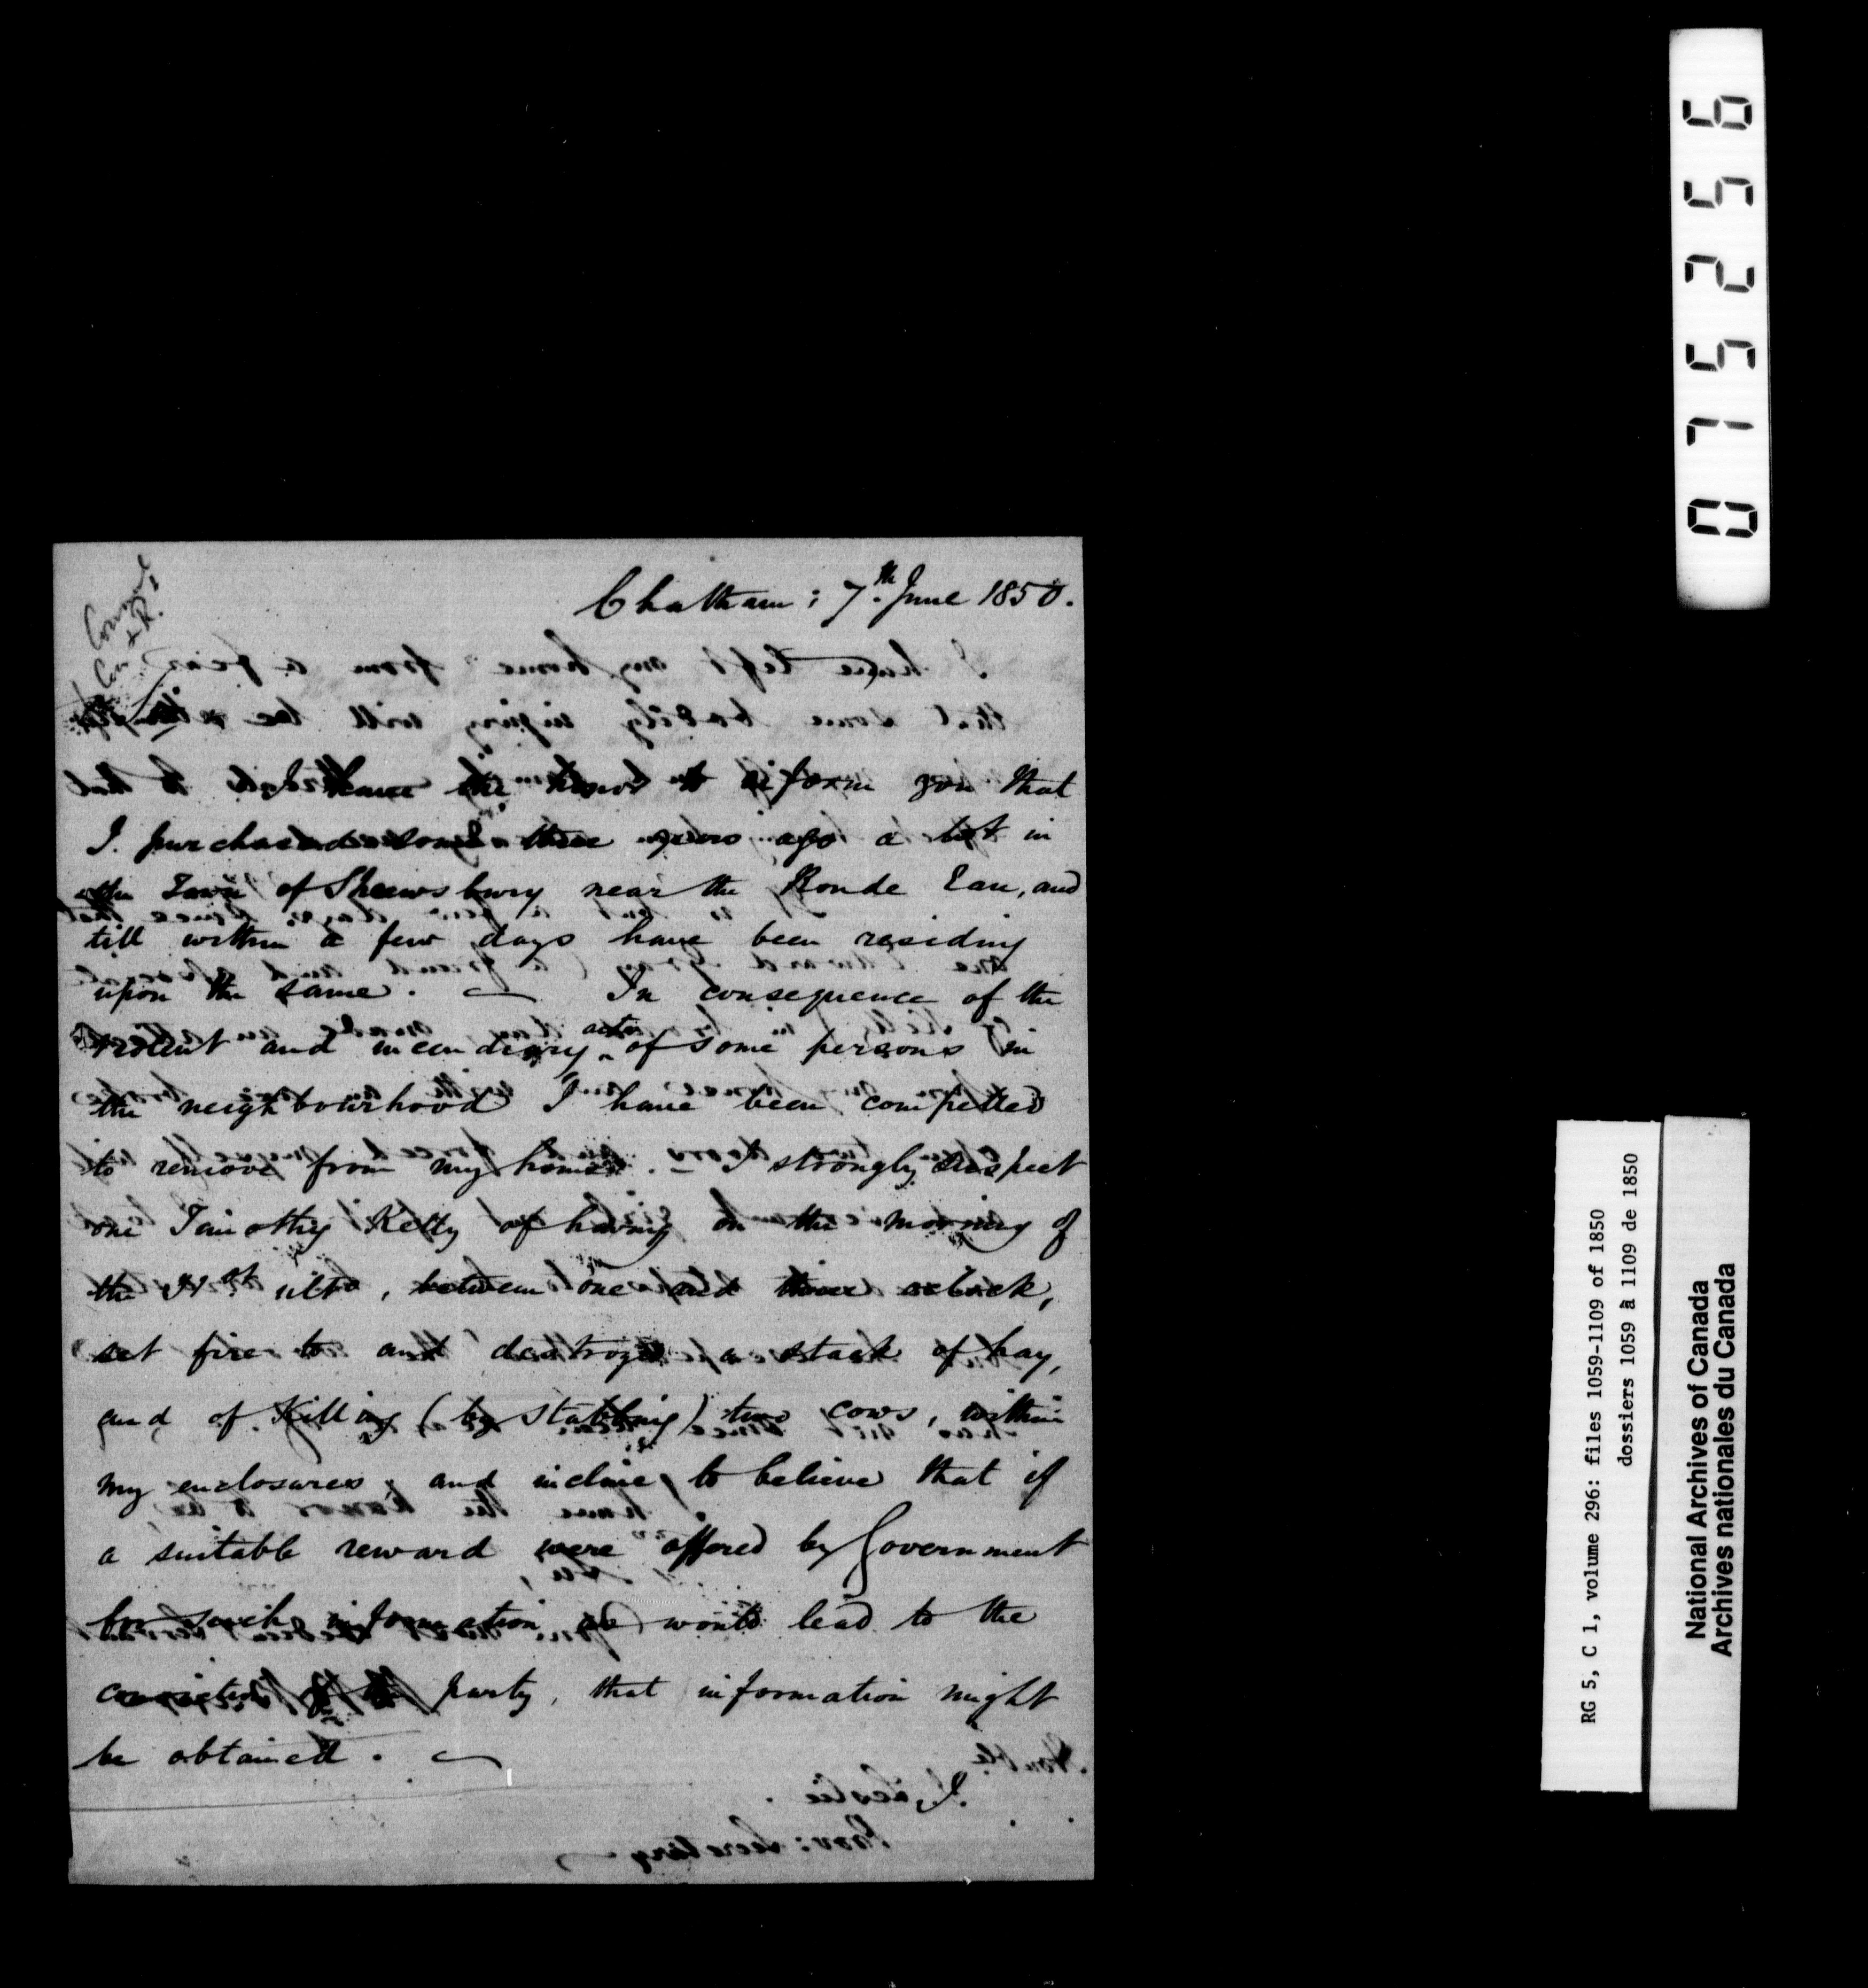 Chatham; 7th June 1850.
I have the honor to inform you that
I purchased some three years ago a lot in
the Town of Shrewsbury near the Ronde Eau, and
till within a few days have been residing
upon the same. In consequence of the
violent and incendiary acts of some persons in
the neighbourhood I have been compelled
to remove from my home. - I strongly suspect
one Timothy Kelly of having on the morning of
the 31st ulto, between one and three oclock,
set fire to and destroyed a stack of hay,
and of killing (by stabbing) two cows, within
my enclosures; and incline to believe that if
a suitable reward were offered by Government
for such information as would lead to the
conviction of the party, that information might
be obtained.
075256
RG 5, C 1, volume 296: files 1059-1109 of 1850
dossiers 1059 à 1109 de 1850
National Archives of Canada
Archives nationales du Canada